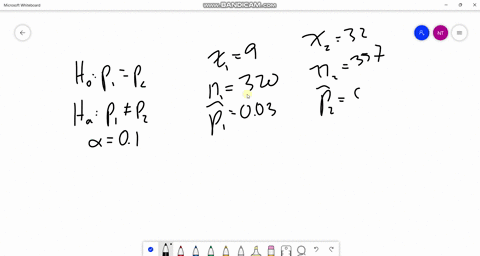 Microsoft Whiteboard
WWW.BANDICAM.COM
NT
H₀: P₁ = P₂
Hₐ: P₁ ≠ P₂
α = 0.1
x₁ = 9
n₁ = 320
p̂₁ = 0.03
x₂ = 32
n₂ = 337
p̂₂ = 0